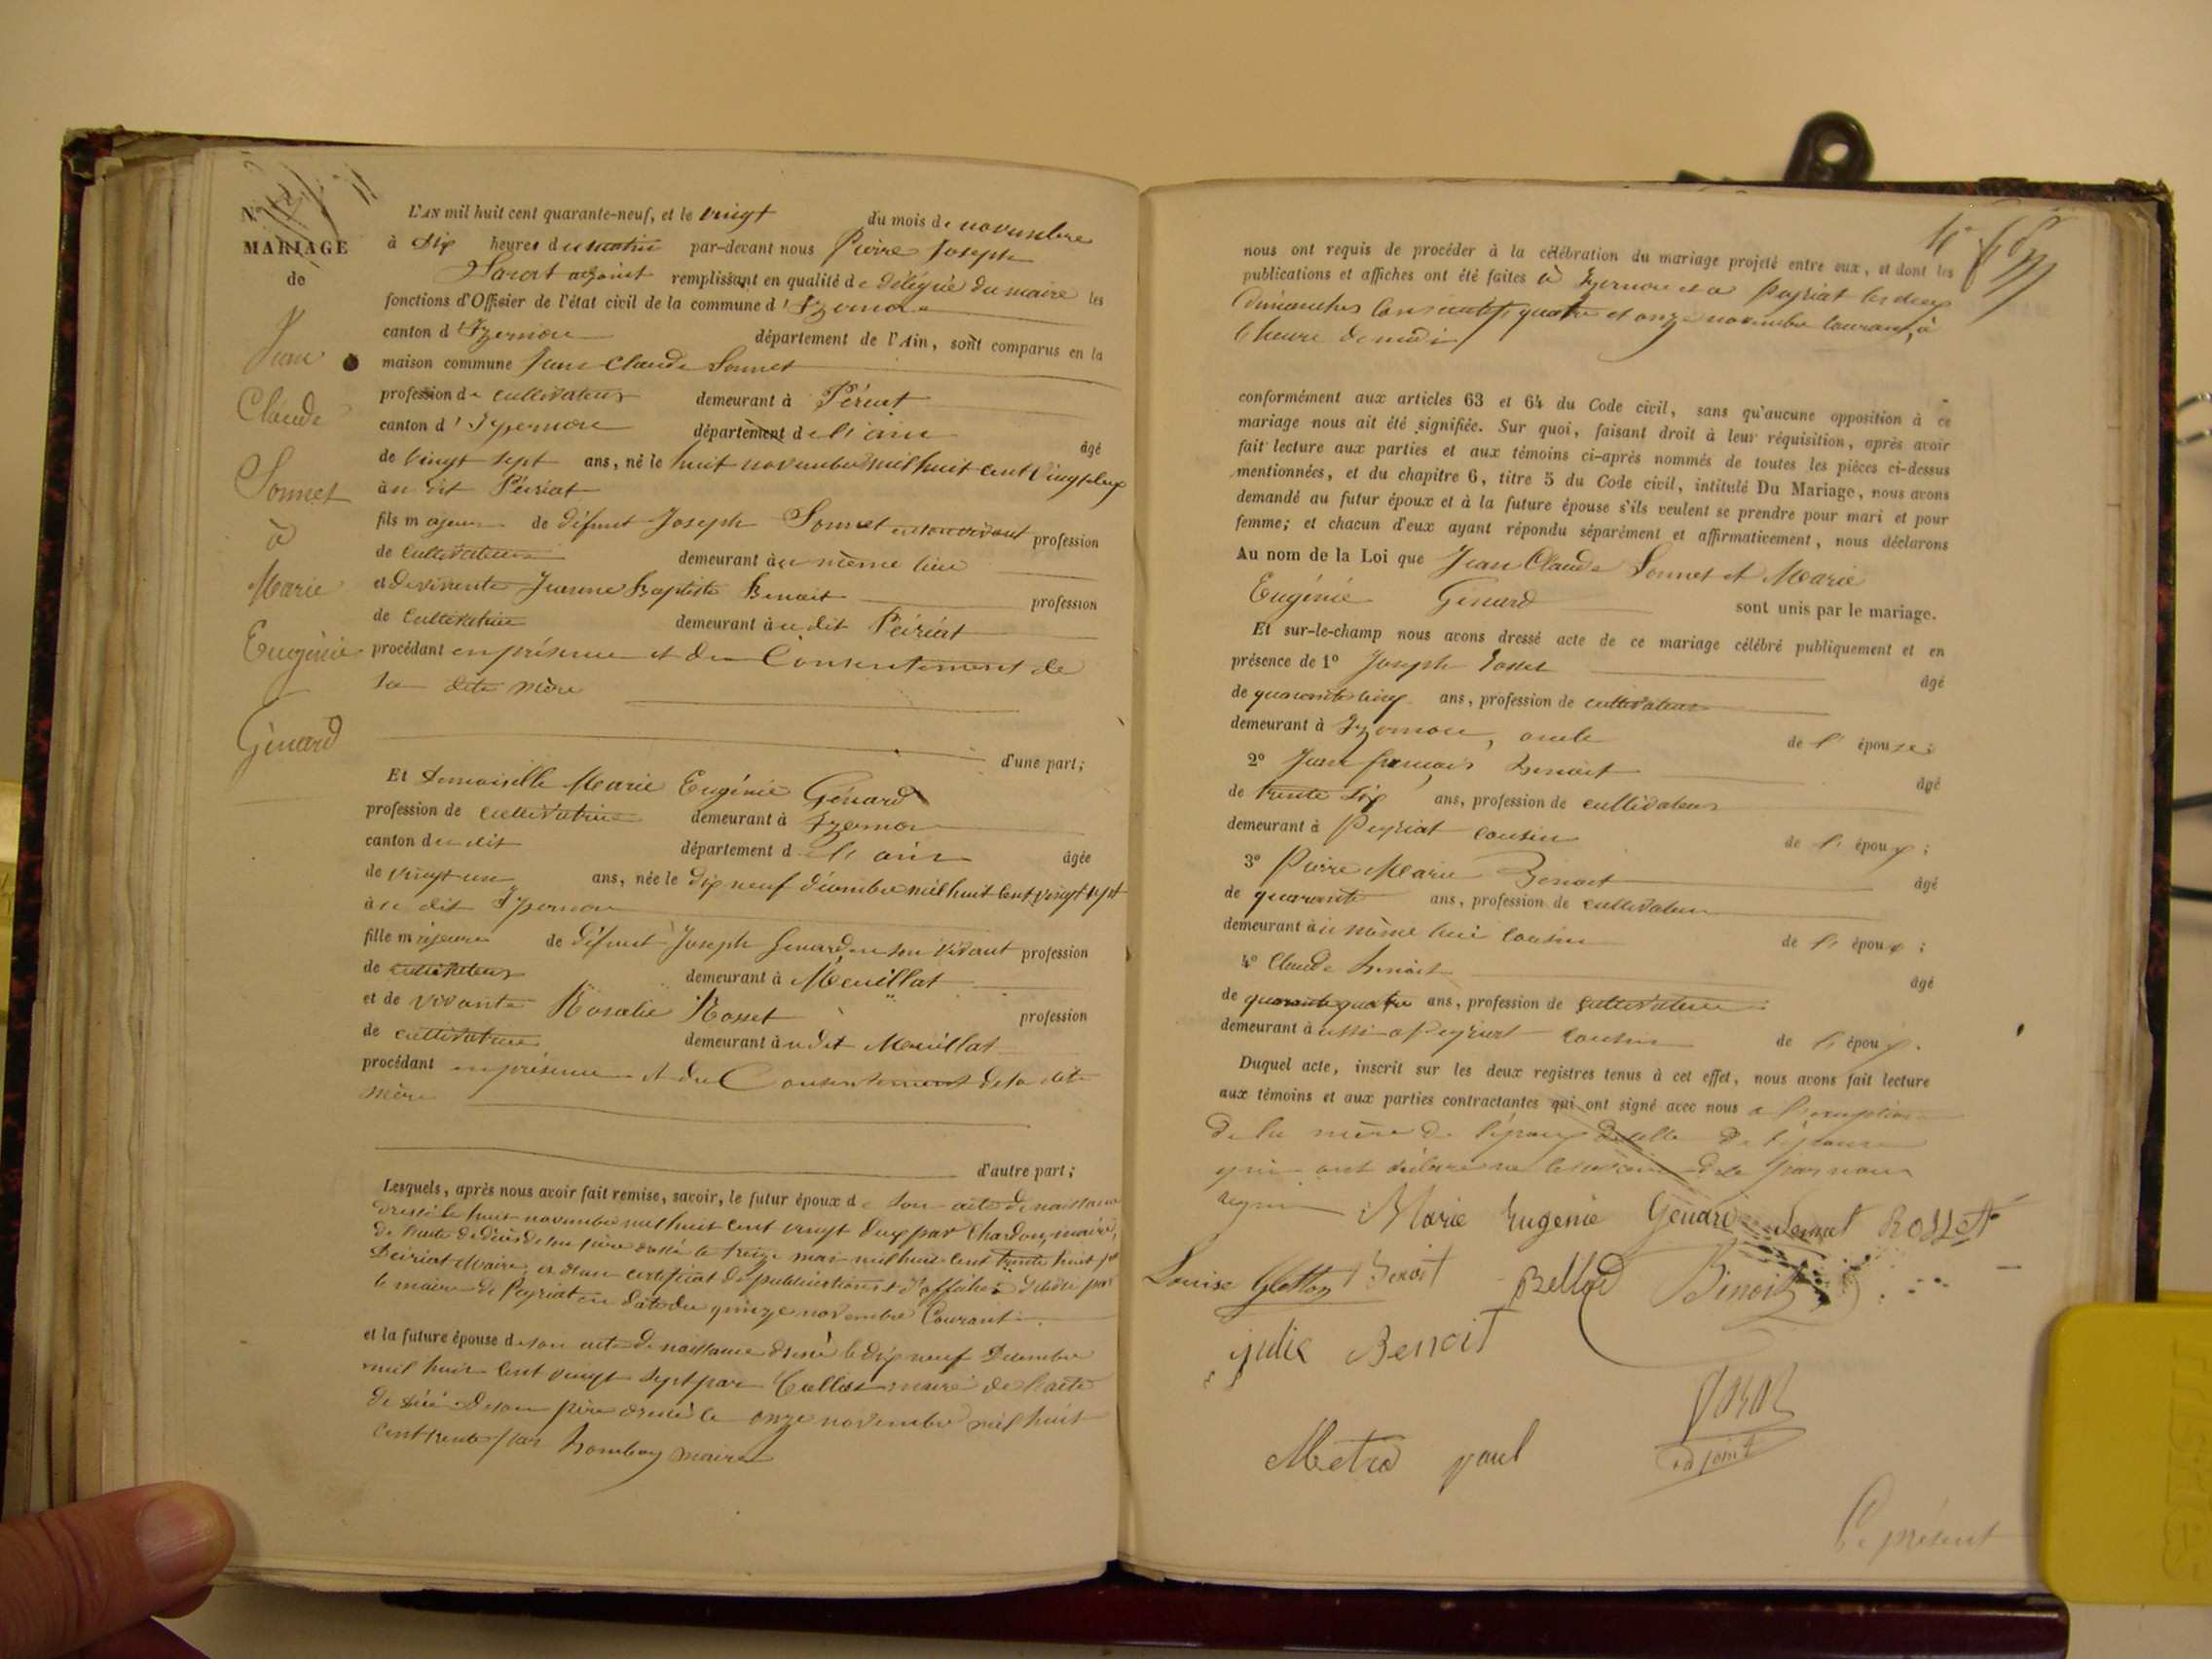 N°
MARIAGE
de
Jean
Claude
Sonnet
à
Marie
Eugénie
Génard
L'AN mil huit cent quarante-neuf, et le vingt du mois de novembre
à dix heures du matin par-devant nous Pierre Joseph
adjoint remplissant en qualité de délégué du maire les
fonctions d'Officier de l'état civil de la commune d'Izernore
canton d'Izernore département de l'Ain, sont comparus en la
maison commune Jean Claude Sonnet
profession de cultivateur demeurant à Périat
canton d'Izernore département de l'ain âgé
de vingt sept ans, né le huit novembre mil huit cent vingt deux
au dit Périat
fils majeur de défunt Joseph Sonnet en son vivant profession
de cultivateur demeurant au même lieu
et de vivante Jeanne Baptiste Benoit profession
de cultivatrice demeurant au dit Peiriat
procédant en présence et du Consentement de
sa dite mère
d'une part;
Et demoiselle Marie Eugénie Génard
profession de cultivatrice demeurant à Izernore
canton du dit département de l'ain âgée
de vingt un ans, née le dix neuf décembre mil huit cent vingt sept
au dit Izernore
fille majeure de défunt Joseph Genard en son vivant profession
de cultivateur demeurant à Meuillat
et de vivante Rosalie Rosset profession
de cultivatrice demeurant au dit Meuillat
procédant en présence et du Consentement de sa dite
mère
d'autre part;
Lesquels, après nous avoir fait remise, savoir, le futur époux de son acte de naissance
dressé le huit novembre mil huit cent vingt deux par Chardon, maire,
de l'acte de décès de son père dressé le treize mai mil huit cent trente huit par
Peiriat Maire, et d'un certificat de publications et d'affiches délivré par
le maire de Peyriat en date du quinze novembre Courant
et la future épouse de son acte de naissance dressé le dix neuf Décembre
mil huit cent vingt sept par maire de l'acte
de décé de son père dressé le onze novembre mil huit
cent trente par maire
nous ont requis de procéder à la célébration du mariage projeté entre eux, et dont les
publications et affiches ont été faites à Izernore et à Peyriat les deux
dimanches consécutifs quatre et onze novembre courant, à
l'heure de midi
conformément aux articles 63 et 64 du Code civil, sans qu'aucune opposition à ce
mariage nous ait été signifiée. Sur quoi, faisant droit à leur réquisition, après avoir
fait lecture aux parties et aux témoins ci-après nommés de toutes les pièces ci-dessus
mentionnées, et du chapitre 6, titre 5 du Code civil, intitulé Du Mariage, nous avons
demandé au futur époux et à la future épouse s'ils veulent se prendre pour mari et pour
femme; et chacun d'eux ayant répondu séparément et affirmativement, nous déclarons
Au nom de la Loi que Jean Claude Sonnet et Marie
Eugénie Génard sont unis par le mariage.
Et sur-le-champ nous avons dressé acte de ce mariage célébré publiquement et en
présence de 1° Joseph Rosset âgé
de quarante cinq ans, profession de cultivateur
demeurant à Izernore, oncle de l'épouse;
2° Jean françois Benoit âgé
de trente six ans, profession de cultivateur
demeurant à Peyriat cousin de l'époux;
3° Pierre Marie Benoit âgé
de quarante ans, profession de cultivateur
demeurant au même lieu cousin de l'époux;
4° Claude Benoit âgé
de quarante quatre ans, profession de cultivateur
demeurant aussi à Peyriat cousin de l'époux.
Duquel acte, inscrit sur les deux registres tenus à cet effet, nous avons fait lecture
aux témoins et aux parties contractantes qui ont signé avec nous a l'exception
De la mère de l'époux de celle de l'épouse
qui ont déclaré ne le savoir de ce par nous
requis
Marie Eugenie Genard Sonnet ROSSET
Louise Benoit Belloud Benoit
julie Benoit
adjoint
paul
Le présent